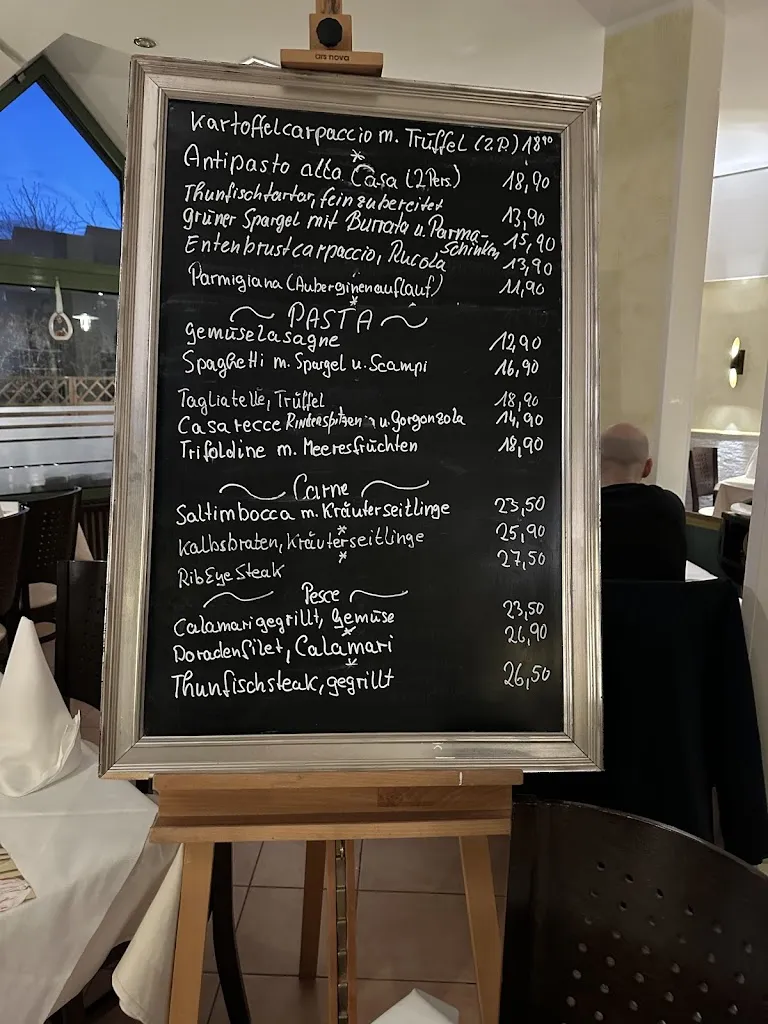 ars nova
Kartoffelcarpaccio m. Trüffel (2P.) 18⁹⁰
*
Antipasto alla Casa (2Pers.) 18,90
Thunfischtartar, fein zubereitet 13,90
grüner Spargel mit Burrata u. Parma-
schinken 15,90
Entenbrustcarpaccio, Rucola 13,90
Parmigiana (Auberginenauflauf) 11,90
*
~ PASTA ~
Gemüselasagne 12,90
Spaghetti m. Spargel u. Scampi 16,90
Tagliatelle, Trüffel 18,90
Casarecce Rinderspitzen u. Gorgonzola 14,90
Trifoldine m. Meeresfrüchten 18,90
~ Carne ~
Saltimbocca m. Kräuterseitlinge 23,50
*
Kalbsbraten, Kräuterseitlinge 25,90
*
RibEye Steak 27,50
~ Pesce ~
Calamari gegrillt, Gemüse 23,50
*
Doradenfilet, Calamari 26,90
*
Thunfischsteak, gegrillt 26,50